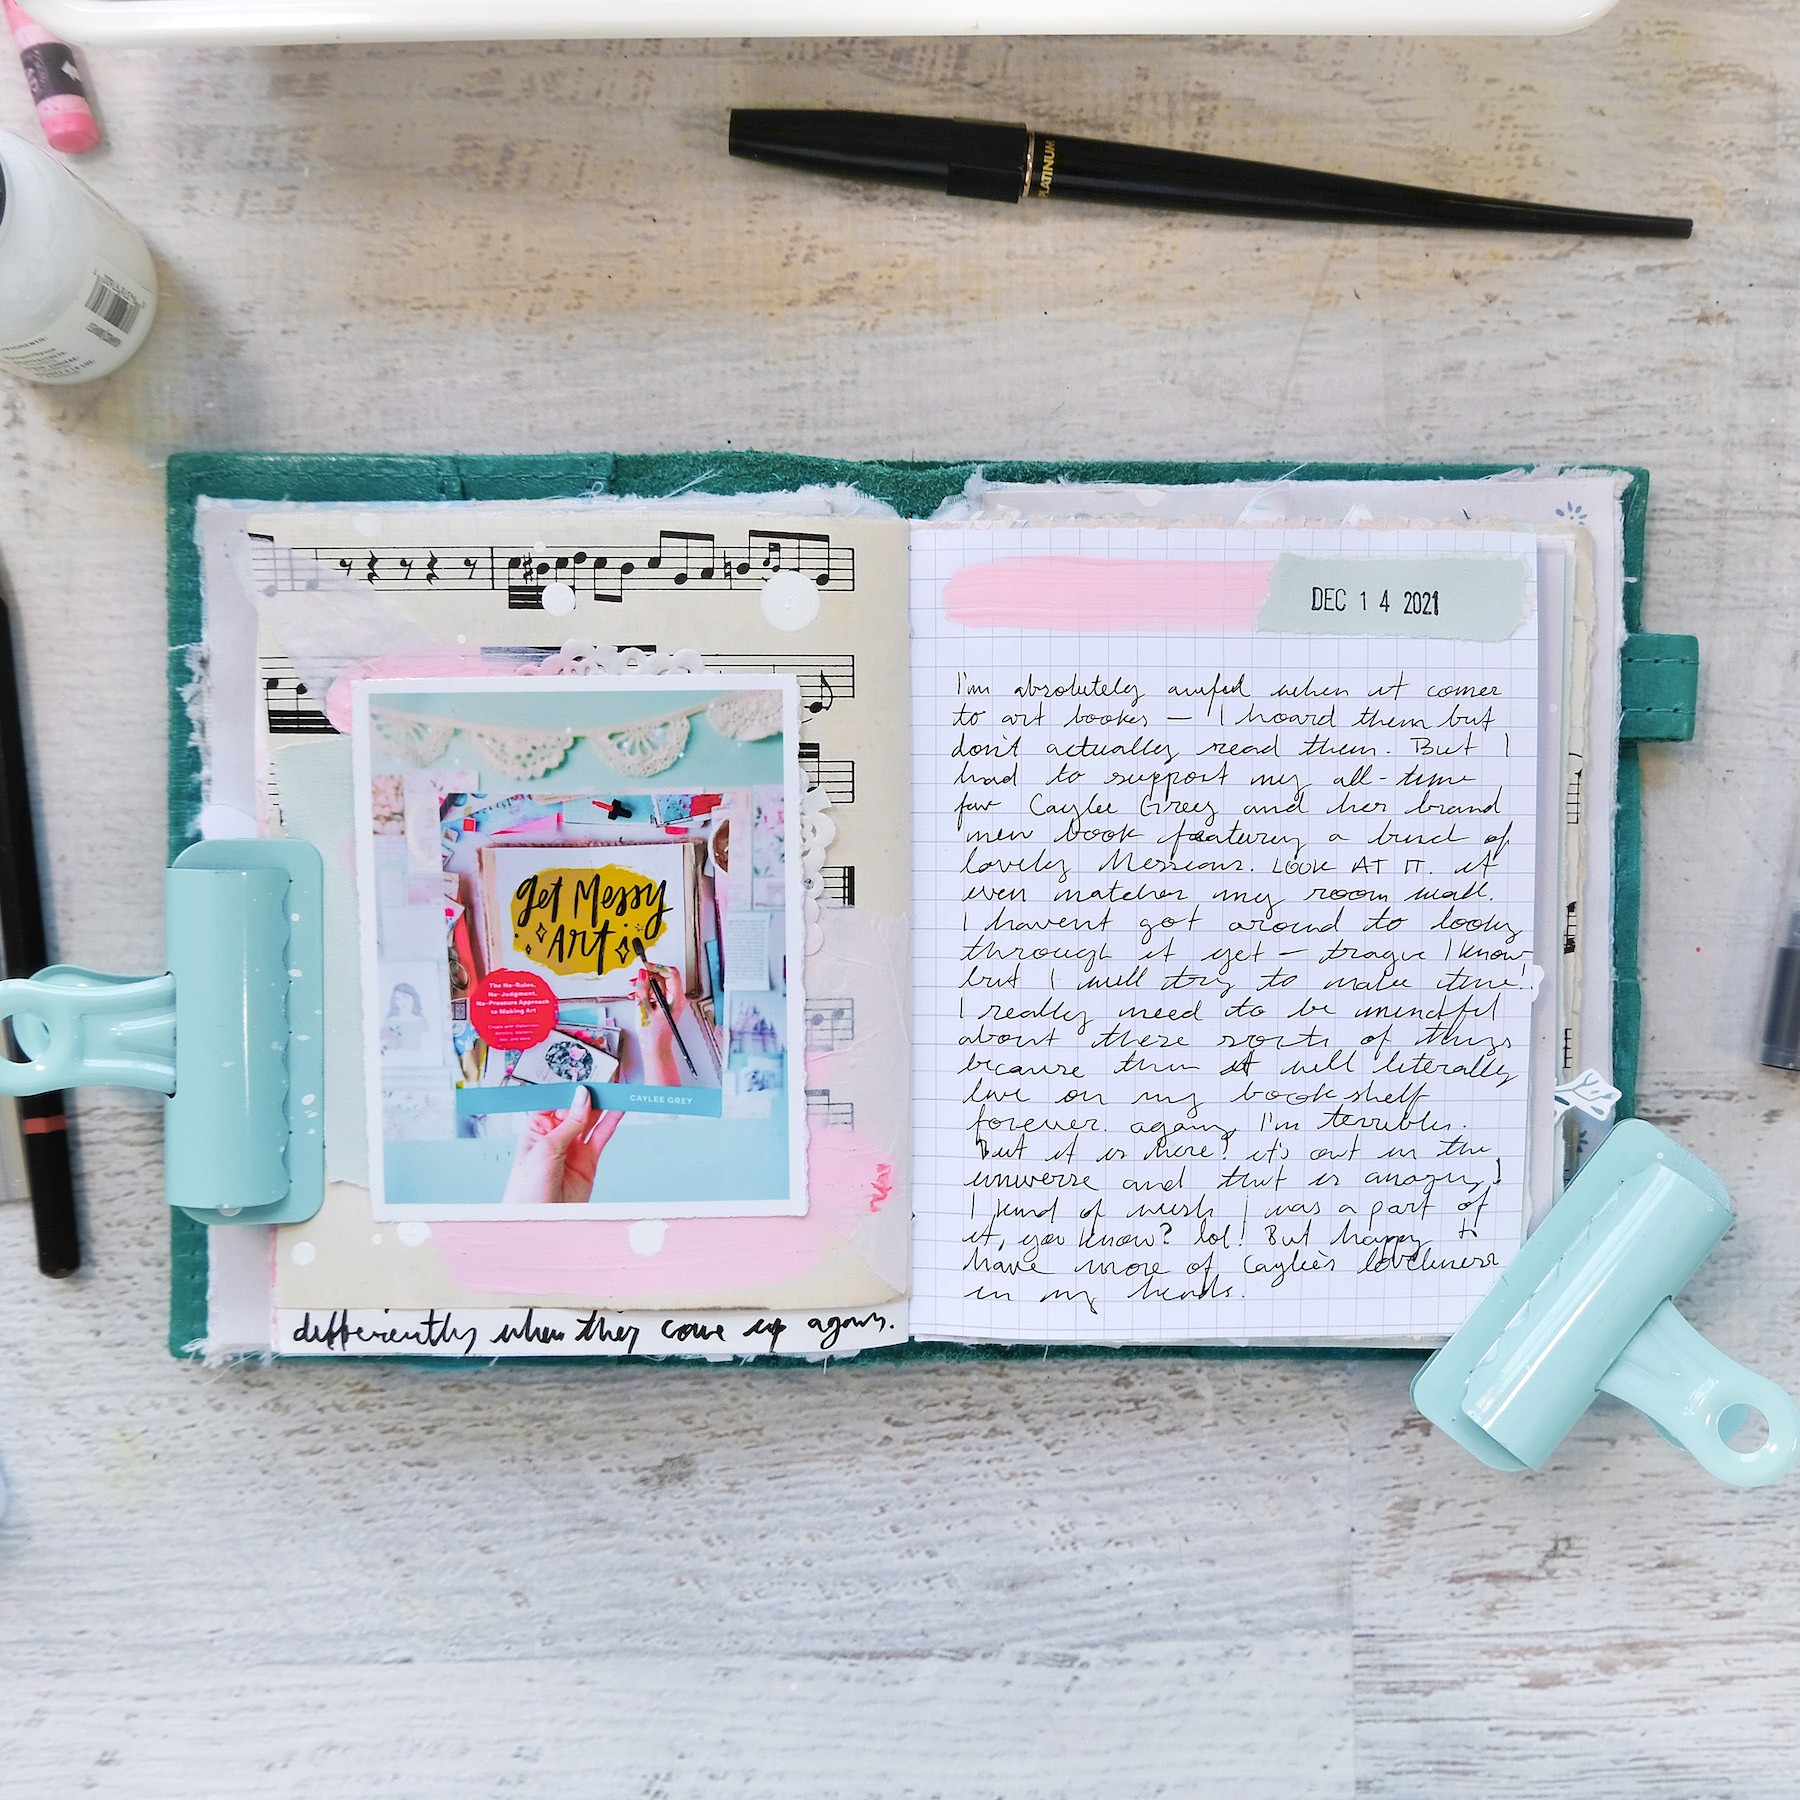 PLATINUM
DEC 14 2021
Get Messy
Art
The No-Rules,
No-Judgment,
No-Pressure Approach
to Making Art
CAYLEE GREY
differently when they come up again.
I'm absolutely awful when it comes
to art books — I hoard them but
don't actually read them. But I
had to support my all-time
fav Caylee Grey and her brand
new book featuring a bunch of
lovely Messians. LOOK AT IT. it
even matches my room wall.
I havent got around to looking
through it yet — tragic I know
but I will try to make time!
I really need to be mindful
about these sorts of things
because then it will literally
live on my bookshelf
forever. again, I'm terrible.
But it is here! it's out in the
universe and that is amazing!
I kind of wish I was a part of
it, you know? lol! But happy to
have more of Caylee's loveliness
in my hands.